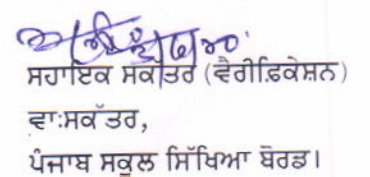 ਸਹਾਇਕ ਸਕੱਤਰ (ਵੈਰੀਫ਼ਿਕੇਸ਼ਨ)
ਵਾ:ਸਕੱਤਰ,
ਪੰਜਾਬ ਸਕੂਲ ਸਿੱਖਿਆ ਬੋਰਡ।